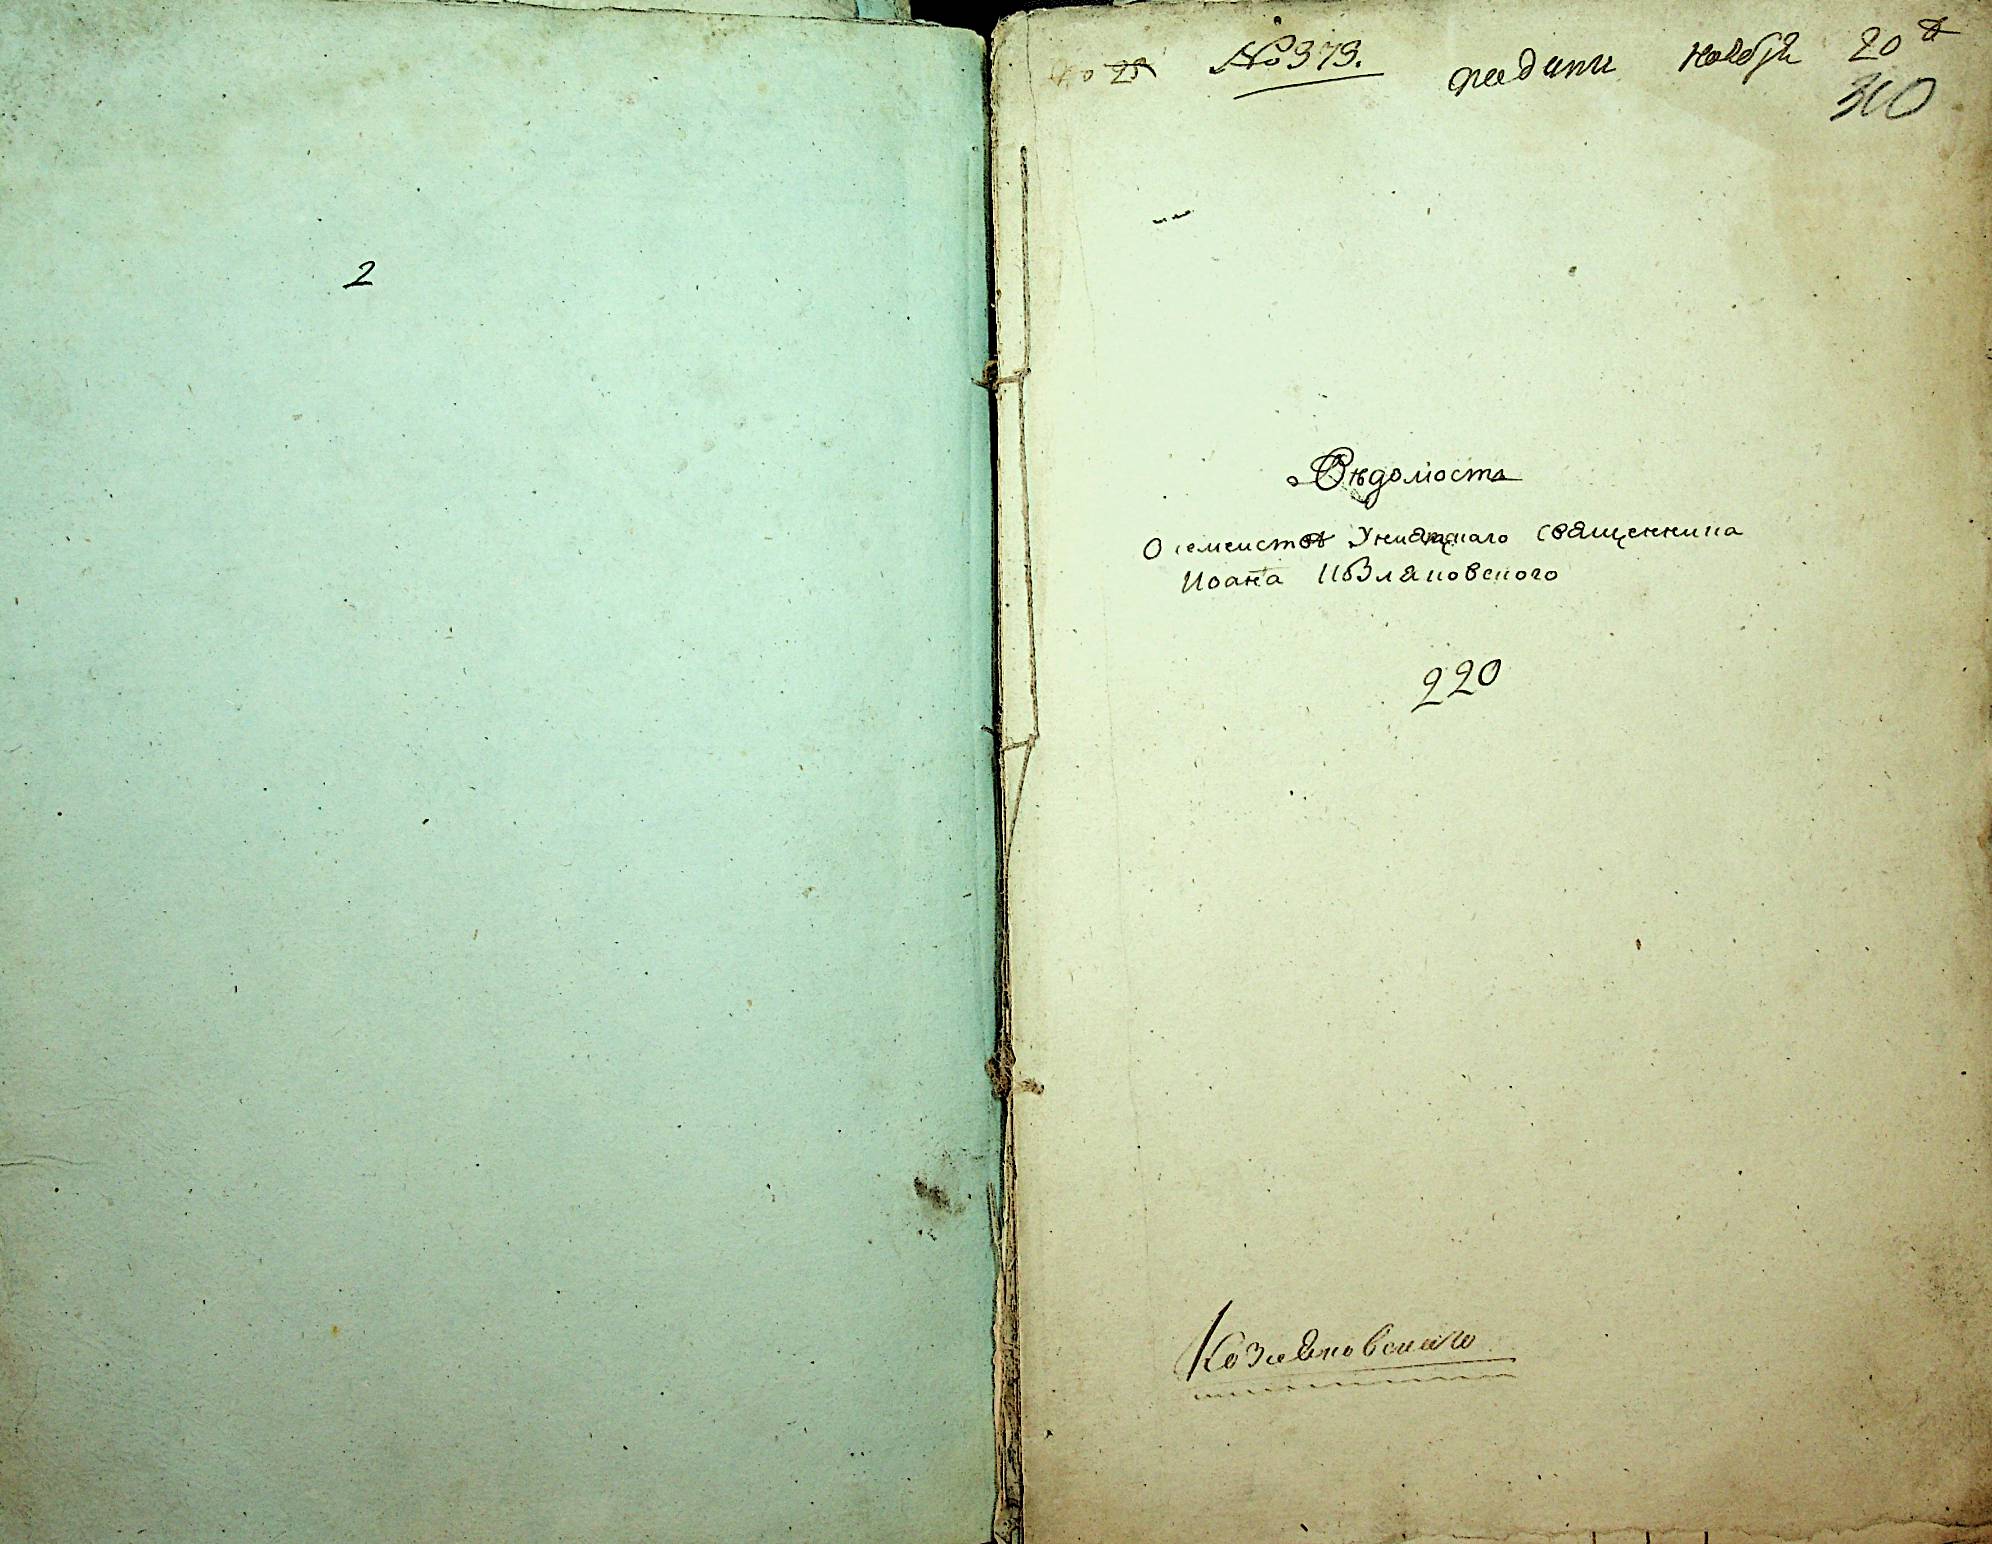 2
№ 373. подати ноября 20 д
310
Вѣдомость
О семеиствѣ Униатскаго священника
Иоана Козляковского
220
Козляковскаго